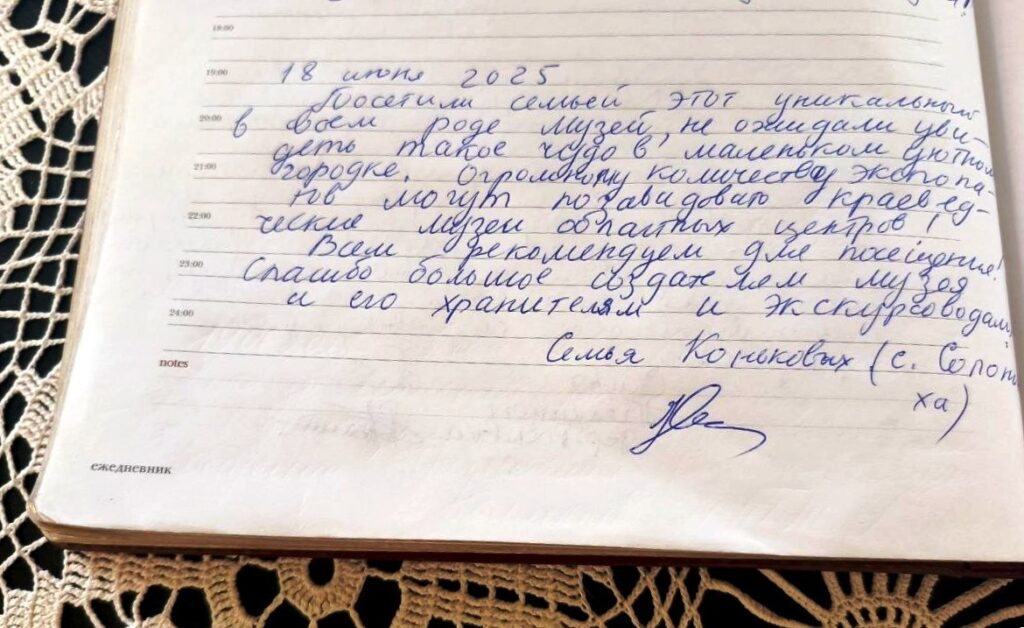 18:00
19:00 18 июня 2025
Посетили семьей этот уникальный
20:00 в своем роде музей, не ожидали уви-
деть такое чудо в маленьком уютном
21:00 городке. Огромному количеству экспона-
тов могут позавидовать краевед-
22:00 ческие музеи областных центров!
Всем рекомендуем для посещения!
23:00 Спасибо большое создателям музея
и его хранителям и экскурсоводам!
24:00
Семья Коньковых (с. Солони
notes
ха)
ежедневник